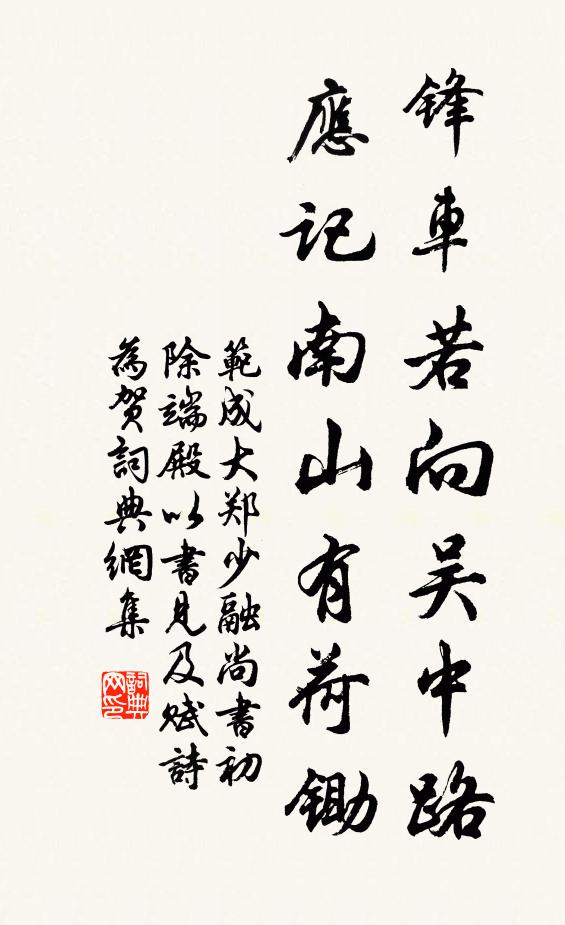 鋒車若向吴中路
應記南山有荷鋤
範成大郑少融尚書初
除端殿以書見及賦詩
為贺詞典網集
詞典
网印